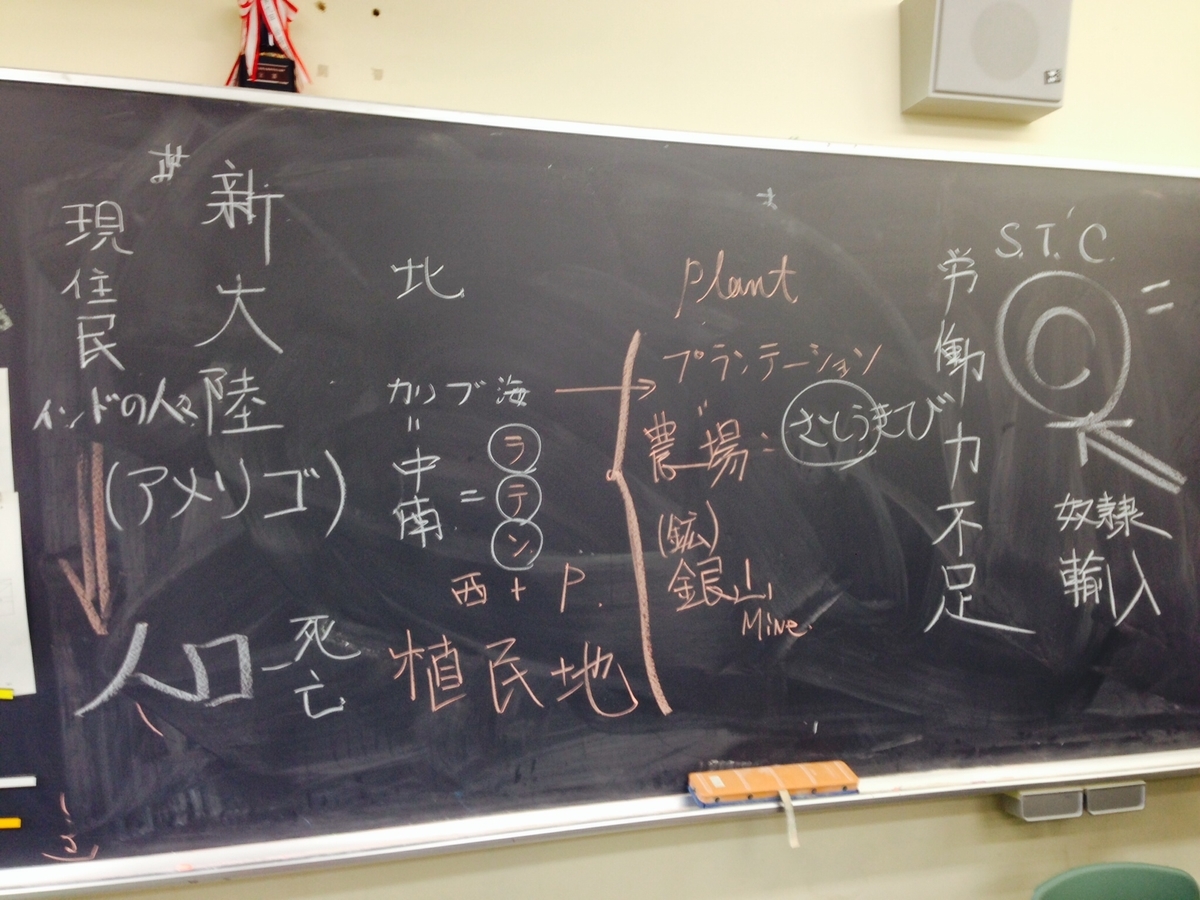 現住民
インドの人々
新大陸
(アメリゴ)
人口
死亡
北
カリブ海
=
中南
=
ラテン
西 + P.
植民地
plant
プランテーション
農場:
さとうきび
(鉱)
銀山
Mine.
労働力不足
S.T.C.
C
=
奴隷
輸入